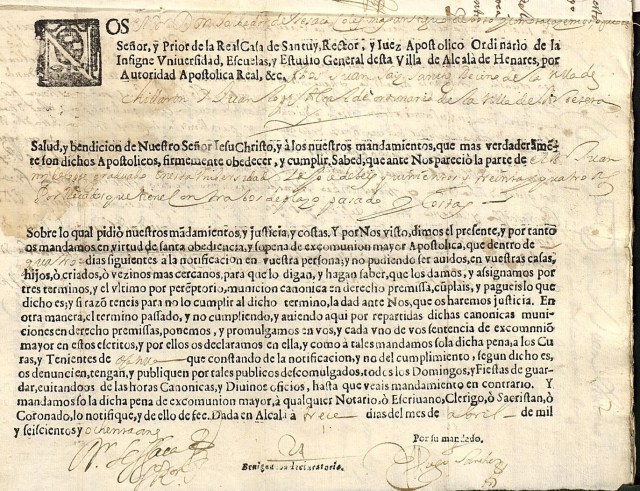 NOS
Señor, y Prior de la Real Casa de Santuy, Rector, y Iuez Apostolico Ordinario de la
Insigne Vniuersidad, Escuelas, y Estudio General desta Villa de Alcalà de Henares, por
Autoridad Apostolica Real, &c. Juan vecino de la Villa de
Chilloron de la Villa de
Salud, y bendicion de Nuestro Señor Iesu Christo, y à los nuestros mandamientos, que mas verdaderamẽ-
te son dichos Apostolicos, firmemente obedecer, y cumplir, Sabed, que ante Nos pareciò la parte de Juan
graduado en esta Uniuersidad y treinta y quatro
plazo pasado y costas
Sobre lo qual pidiò nuestros mãdamientos, y justicia, y costas. Y por Nos visto, dimos el presente, y por tanto
os mandamos en virtud de santa obediencia, y sopena de excomunion mayor Apostolica, que dentro de
quatro dias siguientes à la notificacion en vuestra persona; y no pudiendo ser auidos, en vuestras casas,
hijos, ò criados, ò vezinos mas cercanos, para que lo digan, y hagan saber, que los damos, y assignamos por
tres terminos, y el vltimo por perẽptorio, municion canonica en derecho premissa, cũplais, y pagueis lo que
dicho es; y si razõ teneis para no lo cumplir al dicho termino, la dad ante Nos, que os haremos justicia. En
otra manera, el termino passado, y no cumpliendo, y auiendo aqui por repartidas dichas canonicas muni-
ciones en derecho premissas, ponemos, y promulgamos en vos, y cada vno de vos sentencia de excomnniõ
mayor en estos escritos, y por ellos os declaramos en ella, y como à tales mandamos sola dicha pena, a los Cu-
ras, y Tenientes de que constando de la notificacion, y no del cumplimiento, segun dicho es,
os denuncien, tengan, y publiquen por tales publicos descomulgados, todos los Domingos, y Fiestas de guar-
dar, euitandoos de las horas Canonicas, y Diuinos oficios, hasta que veais mandamiento en contrario. Y
mandamos so la dicha pena de excomunion mayor, à qualquier Notario, ò Escriuano, Clerigo, ò Sacristan, ò
Coronado, lo notifique, y de ello de fee. Dada en Alcalà à trece dias del mes de abril de mil
y seiscientos y ochenta
Por su mandado.
Benigna in declaratoria.
Sanchez